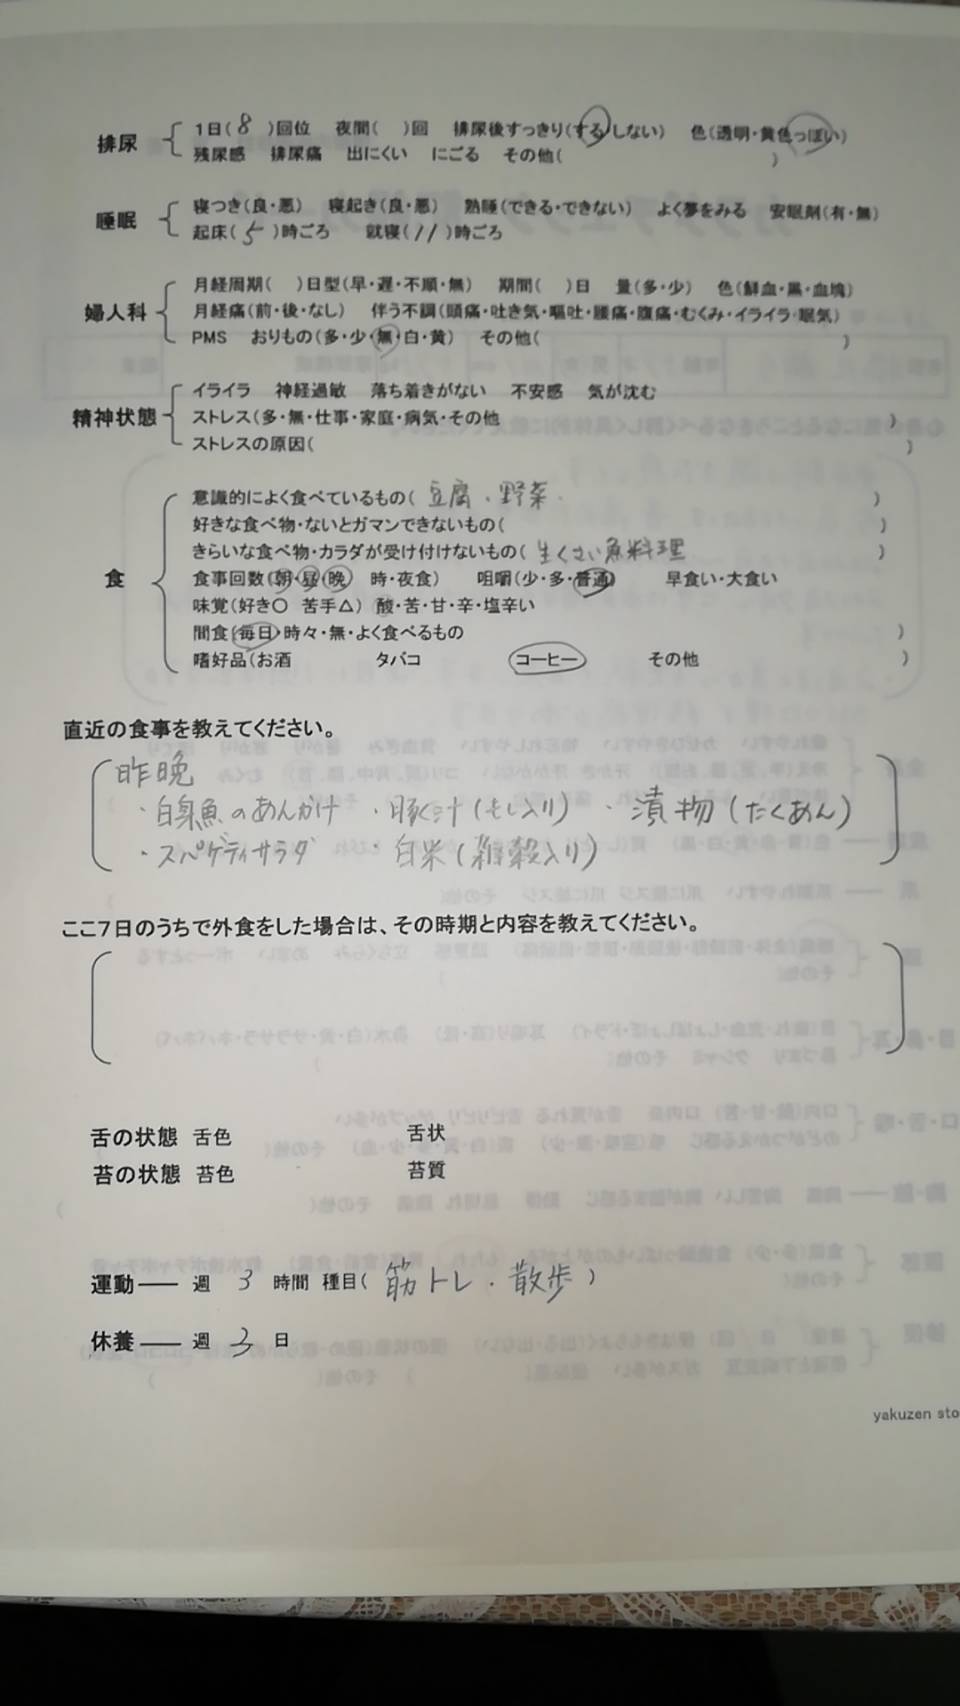 排尿 1日( 8 )回位 夜間( )回 排尿後すっきり(する/しない) 色(透明・黄色っぽい)
残尿感 排尿痛 出にくい にごる その他( )
睡眠 寝つき(良・悪) 寝起き(良・悪) 熟睡(できる・できない) よく夢をみる 安眠剤(有・無)
起床( 5 )時ごろ 就寝( 11 )時ごろ
婦人科 月経周期( )日型(早・遅・不順・無) 期間( )日 量(多・少) 色(鮮血・黒・血塊)
月経痛(前・後・なし) 伴う不調(頭痛・吐き気・嘔吐・腰痛・腹痛・むくみ・イライラ・眠気)
PMS おりもの(多・少・無・白・黄) その他( )
精神状態 イライラ 神経過敏 落ち着きがない 不安感 気が沈む
ストレス(多・無・仕事・家庭・病気・その他 )
ストレスの原因( )
食 意識的によく食べているもの( 豆腐・野菜 )
好きな食べ物・ないとガマンできないもの( )
きらいな食べ物・カラダが受け付けないもの( 生くさい魚料理 )
食事回数(朝・昼・晩 時・夜食) 咀嚼(少・多・普通) 早食い・大食い
味覚(好き〇 苦手△) 酸・苦・甘・辛・塩辛い
間食(毎日・時々・無・よく食べるもの )
嗜好品(お酒 タバコ コーヒー その他 )
直近の食事を教えてください。
昨晩
・白身魚のあんかけ ・豚汁(もし入り) ・漬物(たくあん)
・スパゲティサラダ ・白米(雑穀入り)
ここ7日のうちで外食をした場合は、その時期と内容を教えてください。
舌の状態 舌色 舌状
苔の状態 苔色 苔質
運動―― 週 3 時間 種目( 筋トレ・散歩 )
休養―― 週 3 日
yakuzen sto